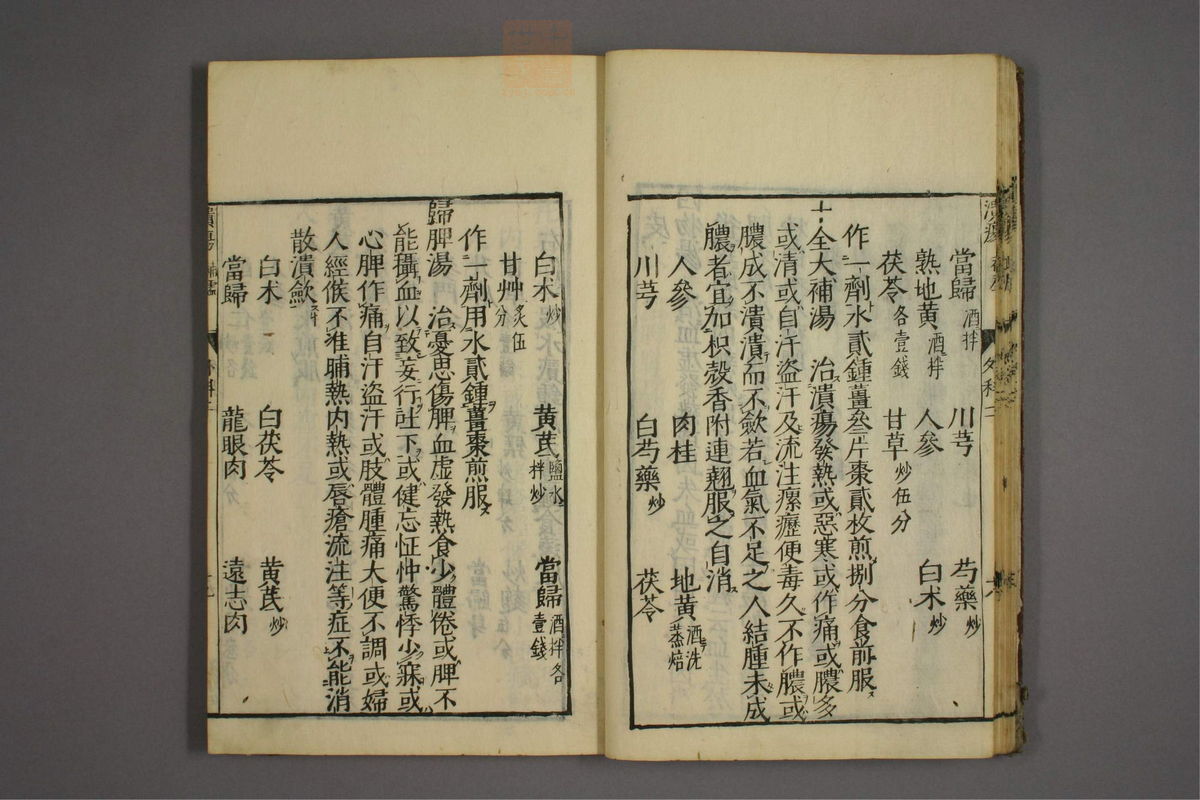 當歸酒拌 川芎 芍藥炒
熟地黄酒拌 人參 白朮炒
茯苓各壹錢 甘草炒伍分
作一劑水貳鍾薑叄片棗貳枚煎捌分食前服
十全大補湯 治潰瘍發熱或惡寒或作痛或膿多
或清或自汗盗汗及流注瘰癧便毒久不作膿或
膿成不潰潰而不斂若血氣不足之人結腫未成
膿者宜加枳殻香附連翹服之自消
人參 肉桂 地黄酒洗蒸焙
川芎 白芍藥炒 茯苓
白朮炒 黄芪鹽水拌炒 當歸酒拌各壹錢
甘艸炙伍分
作一劑用水貳鍾薑棗煎服
歸脾湯 治憂思傷脾血虚發熱食少體倦或脾不
能攝血以致妄行吐下或健忘怔忡驚悸少寐或
心脾作痛自汗盗汗或肢體腫痛大便不調或婦
人經候不准晡熱内熱或唇瘡流注等症不能消
散潰斂
白朮 白茯苓 黄芪炒
當歸 龍眼肉 遠志肉
潰瘍 外科二